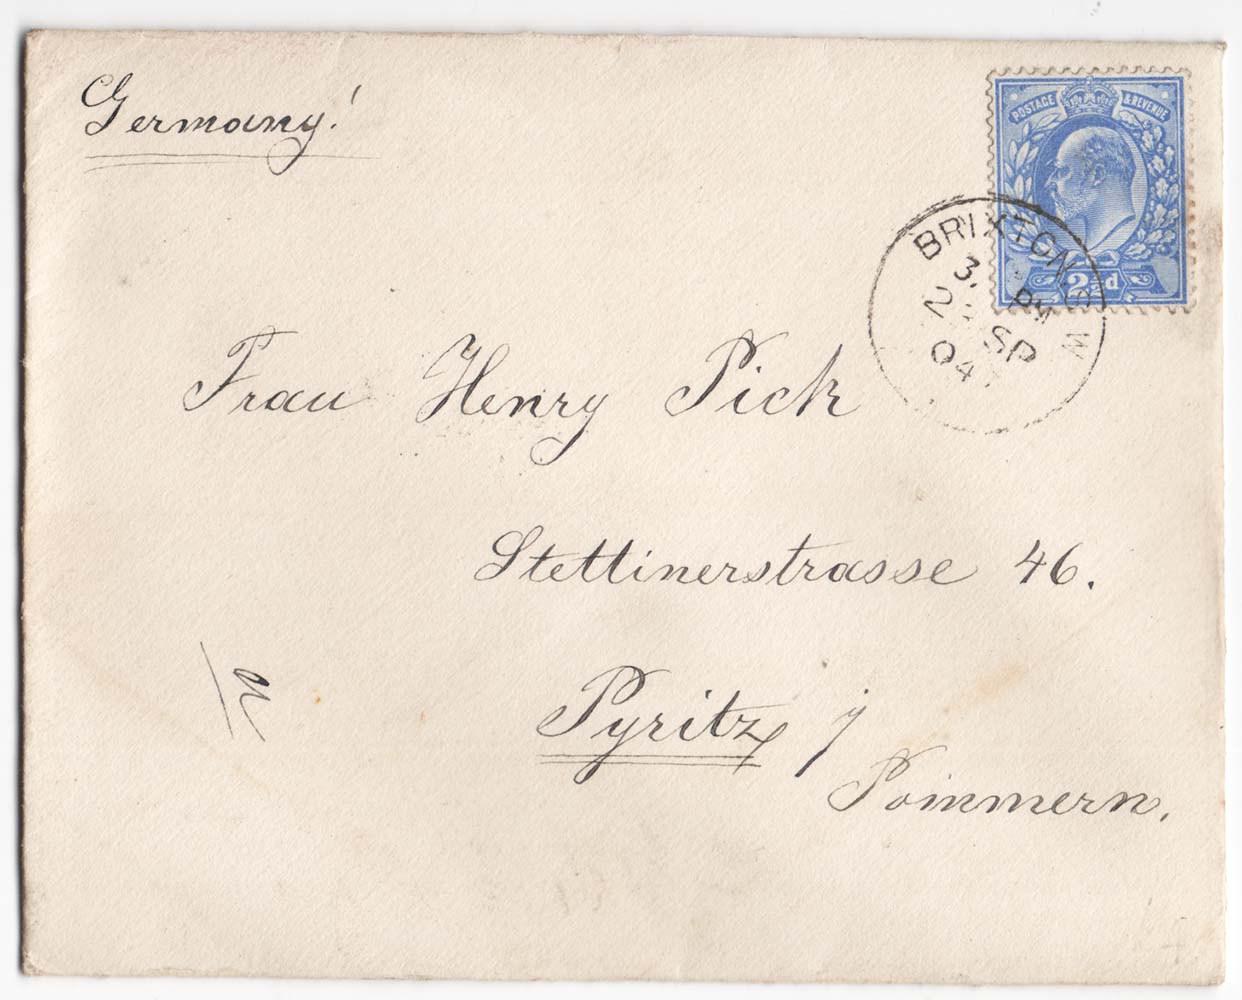 Germany!
POSTAGE & REVENUE
2½d
BRIXTON. S W
PM
SP
04
Frau Henry Pick
Stettinerstrasse 46.
Pyritz j
Pommern.